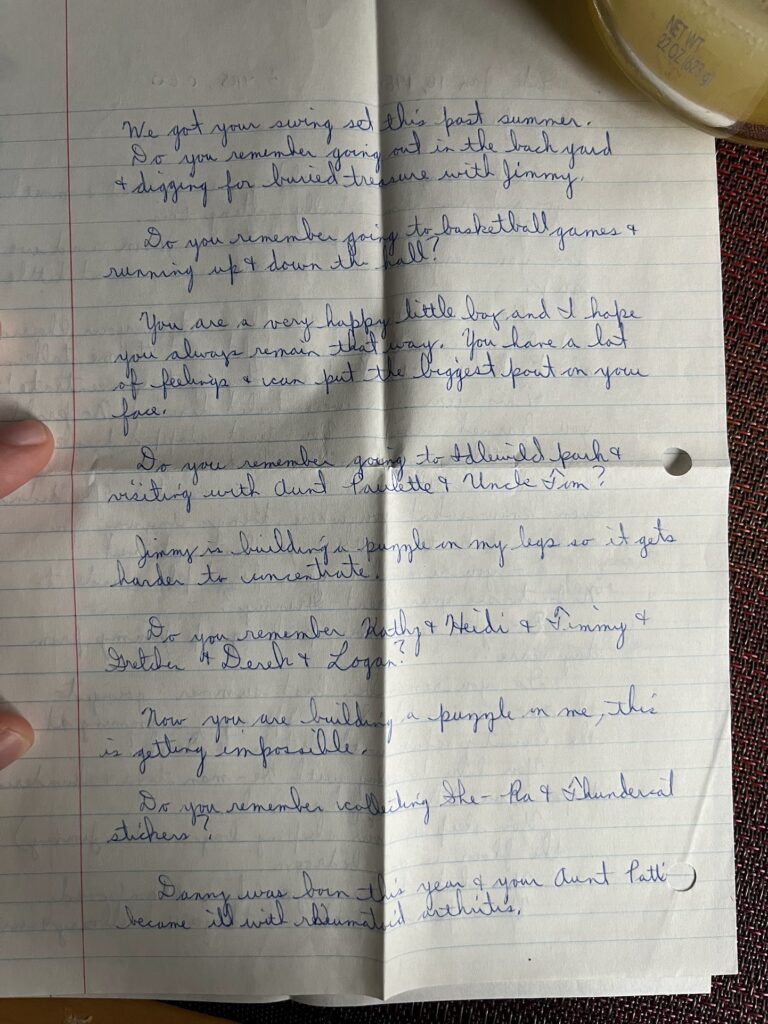 NET WT.
22 OZ (623g)
We got your swing set this past summer.
Do you remember going out in the back yard
& digging for buried treasure with Jimmy.
Do you remember going to basketball games &
running up & down the hall?
You are a very happy little boy and I hope
you always remain that way. You have a lot
of feelings & can put the biggest pout on your
face.
Do you remember going to Idlewild park &
visiting with Aunt Paulette & Uncle Tim?
Jimmy is building a puzzle on my legs so it gets
harder to concentrate.
Do you remember Kathy & Heidi & Timmy &
Gretchen & Derek & Logan?
Now you are building a puzzle on me, this
is getting impossible.
Do you remember collecting She-Ra & Thundercat
stickers?
Danny was born this year & your Aunt Patti
became ill with rheumatoid arthritis.